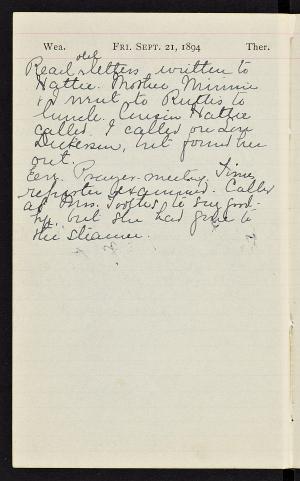 Wea. FRI. SEPT. 21, 1894 Ther.
Read old letters written to
Hattie. Mother, Minnie
& I went to Ruth's to
lunch. Cousin Hattie
called. I called on
Dickerson, but found her
out.
Eve. Prayer-meeting.
reporter Called
at Mrs. to say good-
by, but she had gone to
the steamer.